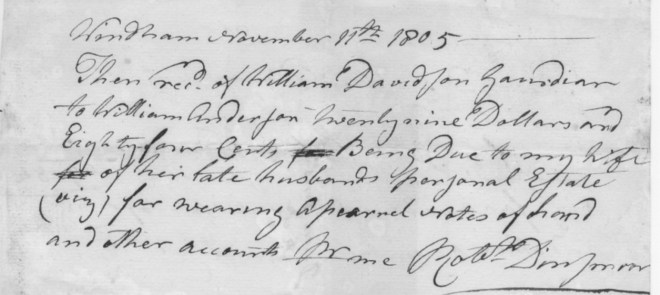 Windham November 11th 1805
Then recd. of William Davidson Gaurdian
to William Anderson twentynine Dollars and
Eightyfour Cents Being Due to my Wife
of her late husbands personal Estate
(viz) for wearing apearrel Notes of hand
and other accounts Pr me Robt. Dinsmoor